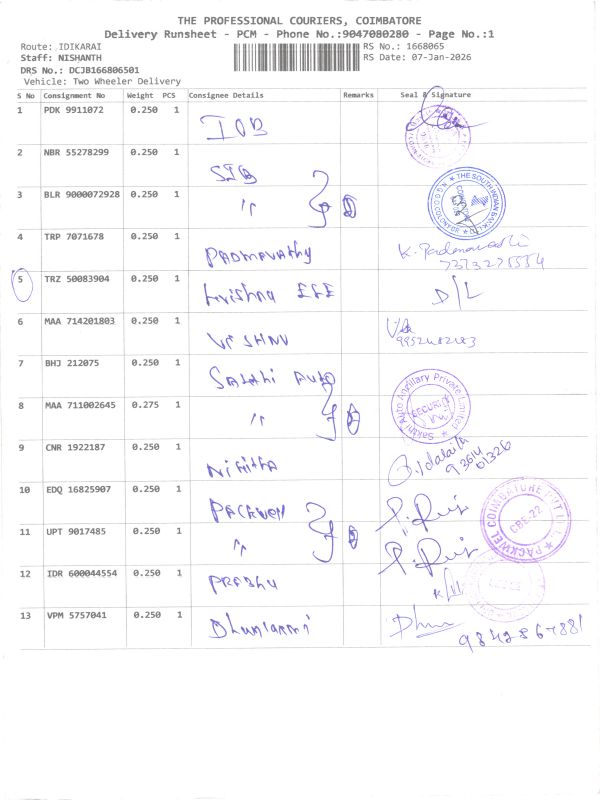 THE PROFESSIONAL COURIERS, COIMBATORE
Delivery Runsheet - PCM - Phone No.:9047080280 - Page No.:1
Route: IDIKARAI
RS No.: 1668065
Staff: NISHANTH
RS Date: 07-Jan-2026
DRS No.: DCJB166806501
Vehicle: Two Wheeler Delivery
S No Consignment No Weight PCS Consignee Details Remarks Seal & Signature
1 PDK 9911072 0.250 1 IOB
2 NBR 55278299 0.250 1 SIB
3 BLR 9000072928 0.250 1 "
THE SOUTH INDIAN BANK
4 TRP 7071678 0.250 1 Padmavathy K. Padmavathi
5 TRZ 50083904 0.250 1 Krishna EEE D/L
6 MAA 714201803 0.250 1 VISHNU
7 BHJ 212075 0.250 1 Sakthi Auto
8 MAA 711002645 0.275 1 "
Sakthi Auto Ancillary Private Limited
SECURITY
9 CNR 1922187 0.250 1 Nikitha
93614 01326
10 EDQ 16825907 0.250 1 Packwell
11 UPT 9017485 0.250 1 "
PACKWEL COIMBATORE PVT
CBE-22
12 IDR 600044554 0.250 1 Prabhu
13 VPM 5757041 0.250 1
9842867881